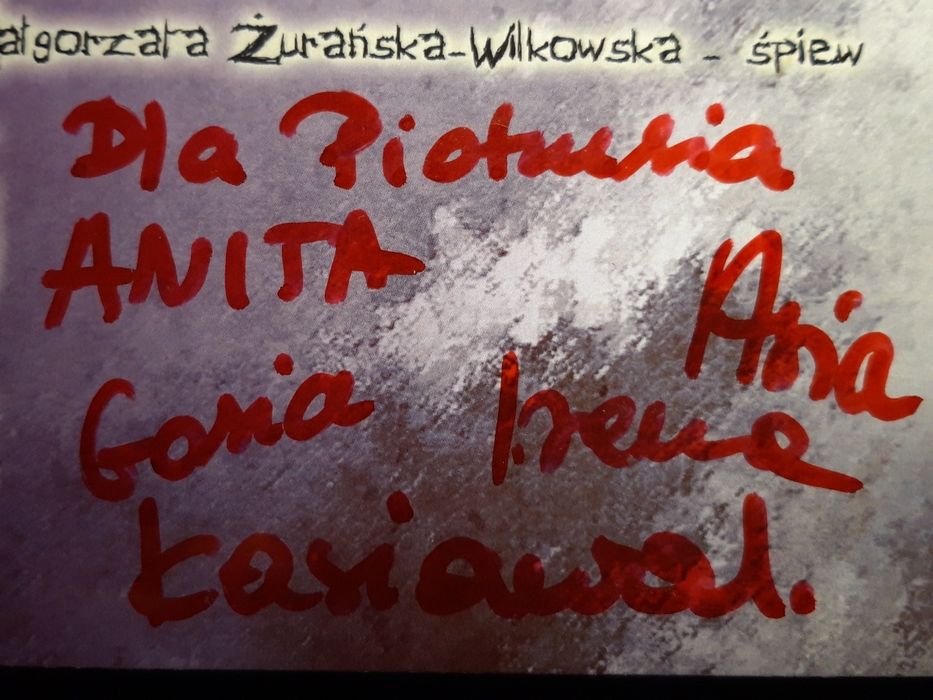 ałgorzata Żurańska-Wilkowska - śpiew
Dla Piotrusia
ANITA
Asia
Gosia
Irena